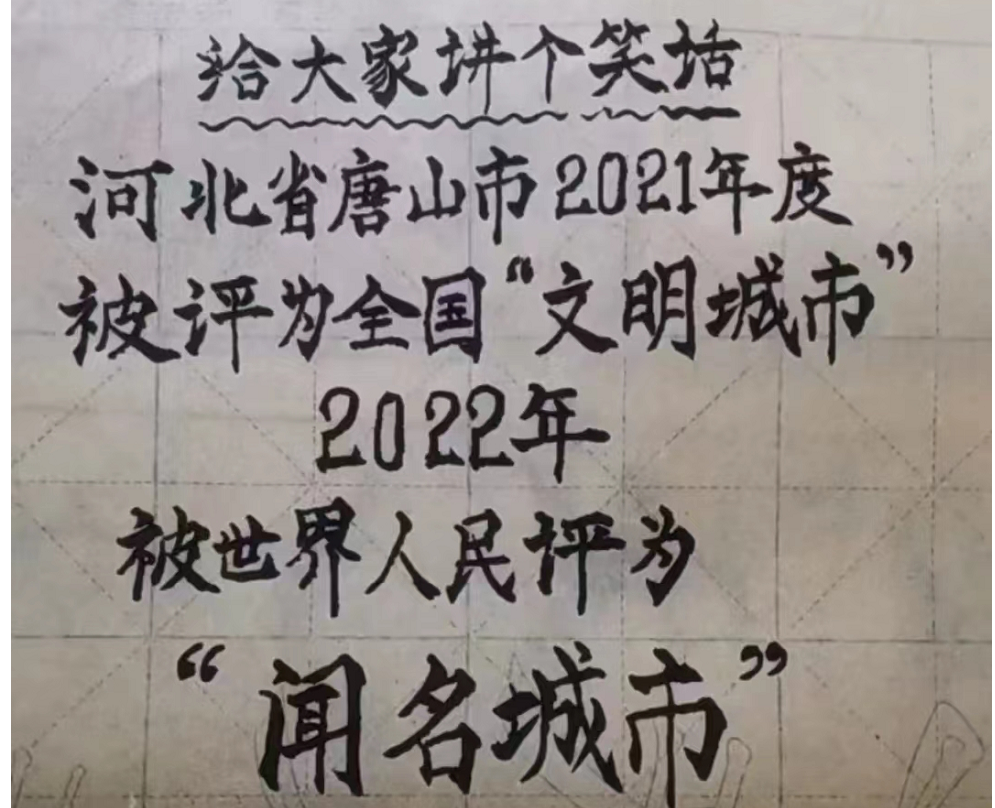 给大家讲个笑话
河北省唐山市2021年度
被评为全国“文明城市”
2022年
被世界人民评为
“闻名城市”